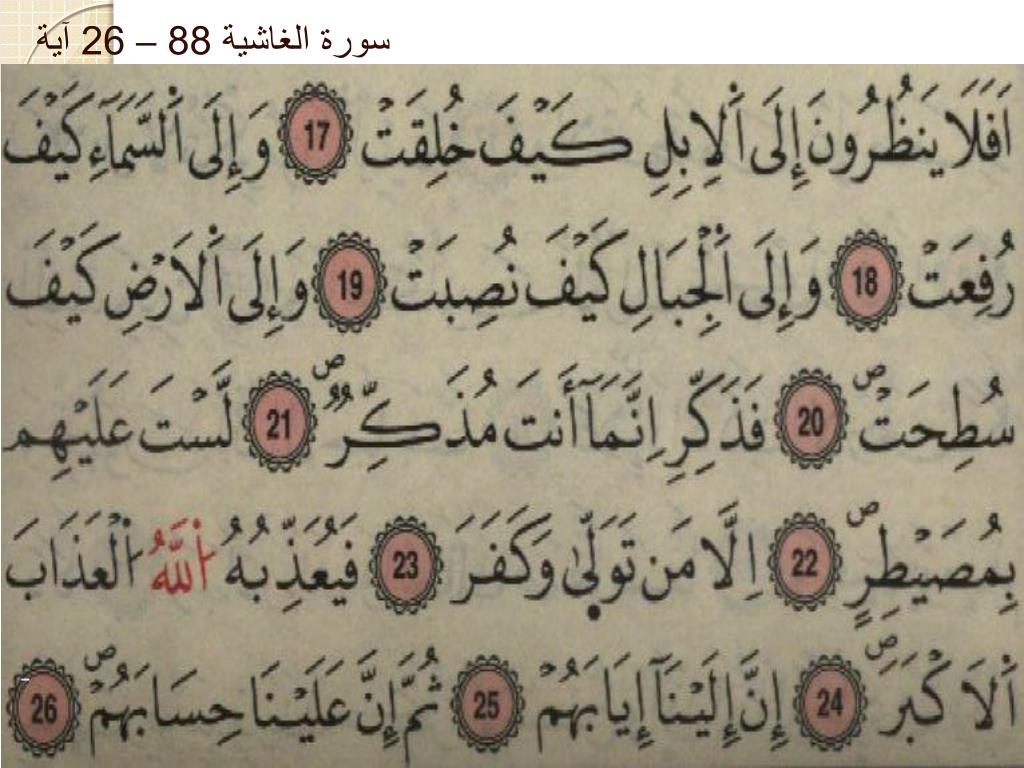 سورة الغاشية 88 – 26 آية
اَفَلَا يَنظُرُونَ إِلَى اَ۬لِابِلِ كَيْفَ خُلِقَتْ 17 وَإِلَى اَ۬لسَّمَآءِ كَيْفَ
رُفِعَتْ 18 وَإِلَى اَ۬لْجِبَالِ كَيْفَ نُصِبَتْ 19 وَإِلَى اَ۬لَارْضِ كَيْفَ
سُطِحَتْۖ 20 فَذَكِّرِ اِنَّمَآ أَنتَ مُذَكِّرٌۖ 21 لَّسْتَ عَلَيْهِم
بِمُصَيْطِرٍۖ 22 اِلَّا مَن تَوَلّ۪ىٰ وَكَفَرَ 23 فَيُعَذِّبُهُ اُ۬للَّهُ اُ۬لْعَذَابَ
اَ۬لَاكْبَرَۖ 24 إِنَّ إِلَيْنَآ إِيَابَهُمْ 25 ثُمَّ إِنَّ عَلَيْنَا حِسَابَهُمْۖ 26